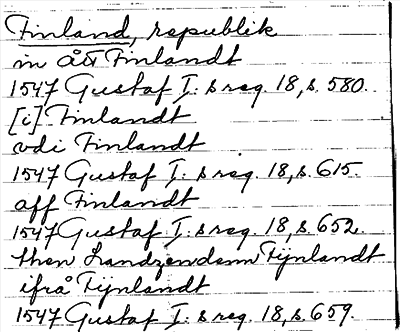 Finland, republik
in ått Finlandt
1547 Gustaf I: s reg. 18, s. 580.
[i] Finlandt
vdi Finlandt
1547 Gustaf I: s reg. 18, s. 615.
aff Finlandt
1547 Gustaf I: s reg. 18, s. 652.
then Landzendem Fijnlandt
ifrå Fijnlandt
1547 Gustaf I: s reg. 18, s. 659.